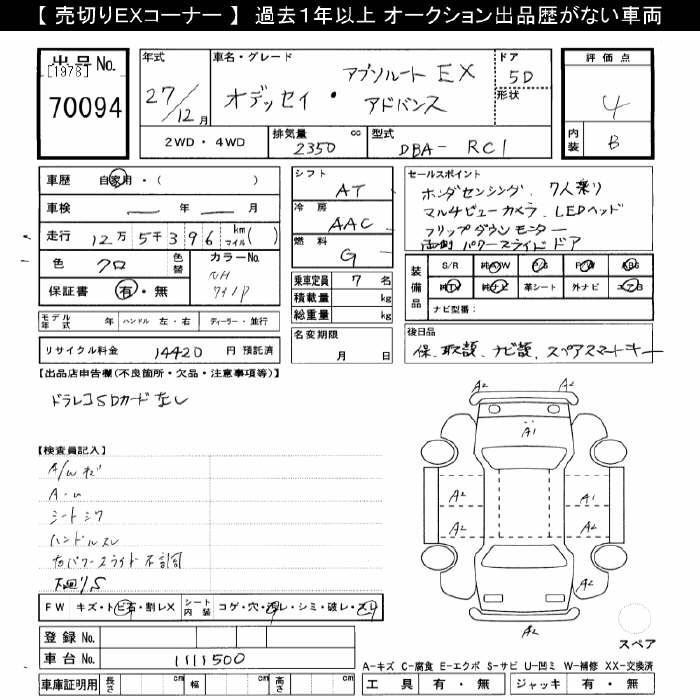 【 売切りEXコーナー 】 過去１年以上 オークション出品歴がない車両
出品No.
[1978]
70094
年式
27/12月
車名・グレード
オデッセイ・アブソルート EX
アドバンス
ドア
5D
形状
評価点
4
内装
B
2WD・4WD
排気量
cc
2350
型式
DBA- RC1
車歴
自家用・( )
車検
年 月
走行
12万5千396
km
マイル
( )
色
クロ
色替
カラーNo.
NH
保証書
有・無
モデル年式
年
ハンドル
左・右
ディーラー・並行
リサイクル料金
14420
円 預託済
シフト
AT
冷房
AAC
燃料
G
乗車定員
7
名
積載量
kg
総重量
kg
名変期限
月 日
セールスポイント
ホンダセンシング. 7人乗り
マルチビューカメラ. LEDヘッド
フリップダウンモニター
両側パワースライドドア
装備品
S/R
純AW
P/S
P/W
ABS
純TV
純ナビ
革シート
外ナビ
エアB
ナビ型番:
後日品
保. 取説. ナビ説. スペアスマートキー
【出品店申告欄(不良箇所・欠品・注意事項等)】
ドラレコSDカードなし
【検査員記入】
A/W キズ
A・U
シートシワ
ハンドルスレ
右パワースライド不調
下廻りS
FW
キズ・トビ石・割レX
シート内装
コゲ・穴・汚レ・シミ・破レ・スレ
登録No.
車台No.
1111500
車庫証明用
長さ
cm
幅
cm
高さ
cm
A2
A2
A1
A2
A1
A2
A2
A2
A2
スペア
A-キズ C-腐食 E-エクボ S-サビ U-凹ミ W-補修 XX-交換済
工具
有・無
ジャッキ
有・無